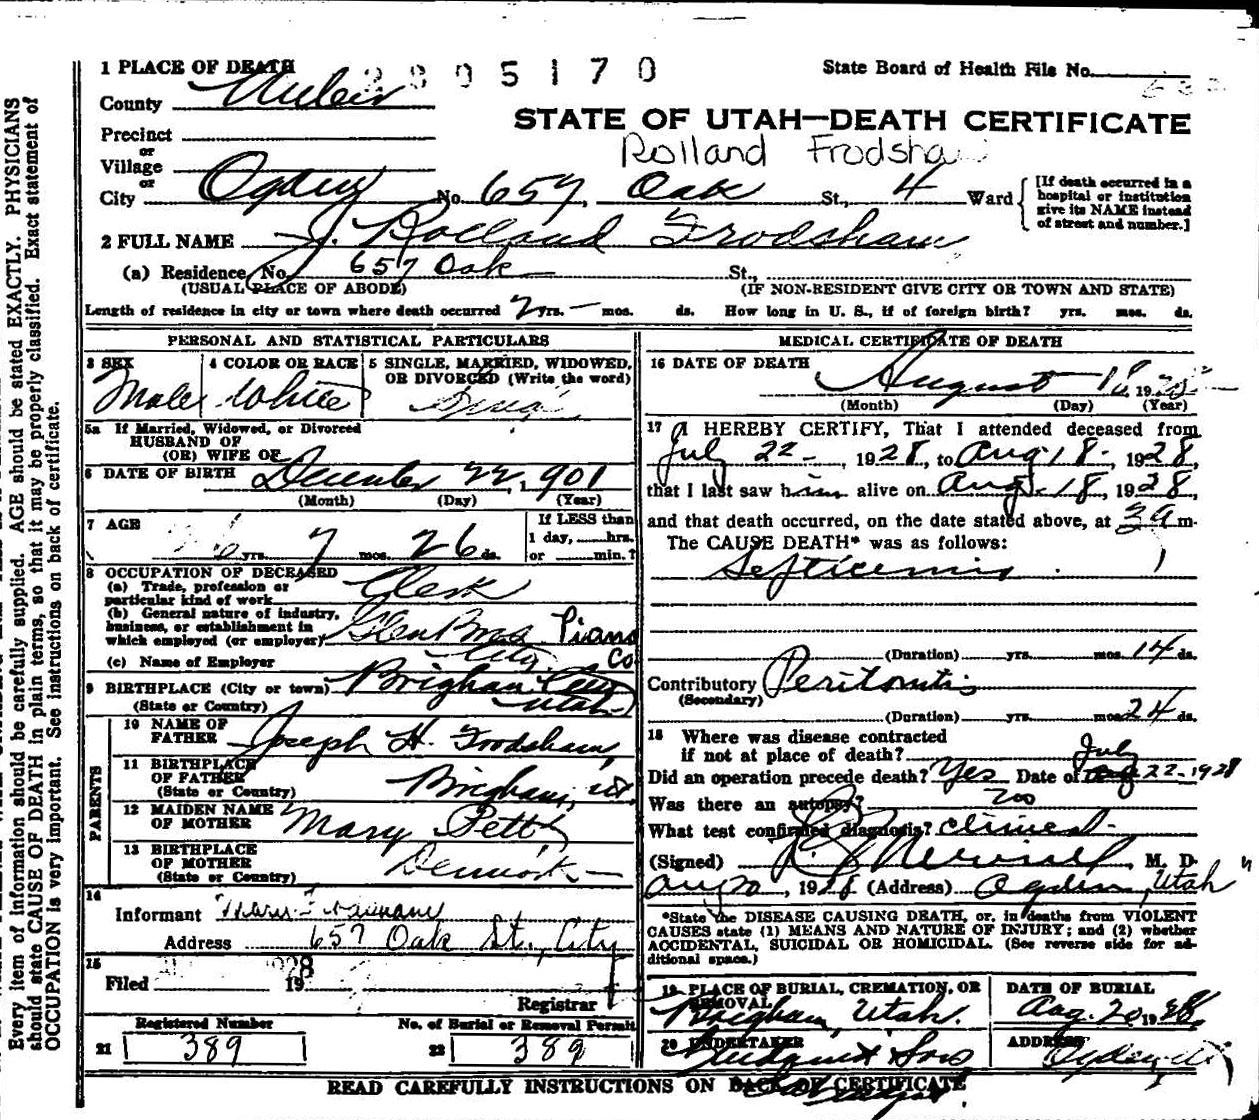 Every item of information should be carefully supplied. AGE should be stated EXACTLY. PHYSICIANS
should state CAUSE OF DEATH in plain terms, so that it may be properly classified. Exact statement of
OCCUPATION is very important. See instructions on back of certificate.
1 PLACE OF DEATH
2805170
State Board of Health File No.
County Weber
STATE OF UTAH—DEATH CERTIFICATE
Precinct
or
Village
Rolland Frodsha
or
City Ogden No. 657 Oak St., 4 Ward
[If death occurred in a
hospital or institution
give its NAME instead
of street and number.]
2 FULL NAME J. Rolland Frodsham
(a) Residence, No. 657 Oak St.,
(USUAL PLACE OF ABODE) (IF NON-RESIDENT GIVE CITY OR TOWN AND STATE)
Length of residence in city or town where death occurred 7 yrs. — mos. ds. How long in U. S., if of foreign birth? yrs. mos. ds.
PERSONAL AND STATISTICAL PARTICULARS
3 SEX 4 COLOR OR RACE 5 SINGLE, MARRIED, WIDOWED,
OR DIVORCED (Write the word)
Male White
5a If Married, Widowed, or Divorced
HUSBAND OF
(OR) WIFE OF
6 DATE OF BIRTH December 22, 901
(Month) (Day) (Year)
7 AGE
If LESS than
1 day, hrs.
or min.?
6 yrs. 7 mos. 26 ds.
8 OCCUPATION OF DECEASED
(a) Trade, profession or
particular kind of work Clerk
(b) General nature of industry,
business, or establishment in
which employed (or employer) Glen Bros Piano
Co
(c) Name of Employer City
9 BIRTHPLACE (City or town) Brigham City
(State or Country) Utah
PARENTS
10 NAME OF
FATHER Joseph H. Frodsham,
11 BIRTHPLACE
OF FATHER
(State or Country) Brigham, ut.
12 MAIDEN NAME
OF MOTHER Mary Pett
13 BIRTHPLACE
OF MOTHER
(State or Country) Denmark
14
Informant
Address 657 Oak St., City
15
Filed 1928 19
Registrar
Registered Number No. of Burial or Removal Permit
21 389 22 389
MEDICAL CERTIFICATE OF DEATH
16 DATE OF DEATH
August 18, 1928
(Month) (Day) (Year)
17 I HEREBY CERTIFY, That I attended deceased from
July 22 - 1928, to Aug 18 - 1928,
that I last saw him alive on Aug. 18, 1928,
and that death occurred, on the date stated above, at m.
The CAUSE DEATH* was as follows:
Septicemia
(Duration) yrs. mos. 14 ds.
Contributory Peritonitis
(Secondary)
(Duration) yrs. mos. 24 ds.
18 Where was disease contracted
if not at place of death?
July
Did an operation precede death? Yes Date of Aug 22-1928
Was there an autopsy? no
What test confirmed diagnosis? Clinical
(Signed) M. D.
Aug 20, 1928 (Address) Ogden, Utah "
*State the DISEASE CAUSING DEATH, or, in deaths from VIOLENT
CAUSES state (1) MEANS AND NATURE OF INJURY; and (2) whether
ACCIDENTAL, SUICIDAL OR HOMICIDAL. (See reverse side for ad-
ditional space.)
19 PLACE OF BURIAL, CREMATION, OR
REMOVAL
Brigham, Utah.
DATE OF BURIAL
Aug. 20 1928
20 UNDERTAKER
& Sons
ADDRESS
Ogden, Ut
READ CAREFULLY INSTRUCTIONS ON BACK OF CERTIFICATE